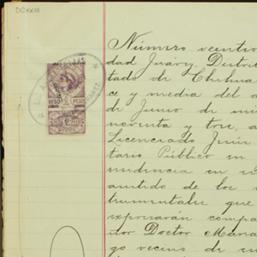 DCXXIII
Número veintiv
dad Juárez, Distri
tado de Chihua
ce y media del d
de Junio de mi
noventa y tres, a
Licenciado Juán
tario Público en
sidencia en es
asistido de los
trumentales que
expresarán compa
ñor Doctor Maria
go vecino de